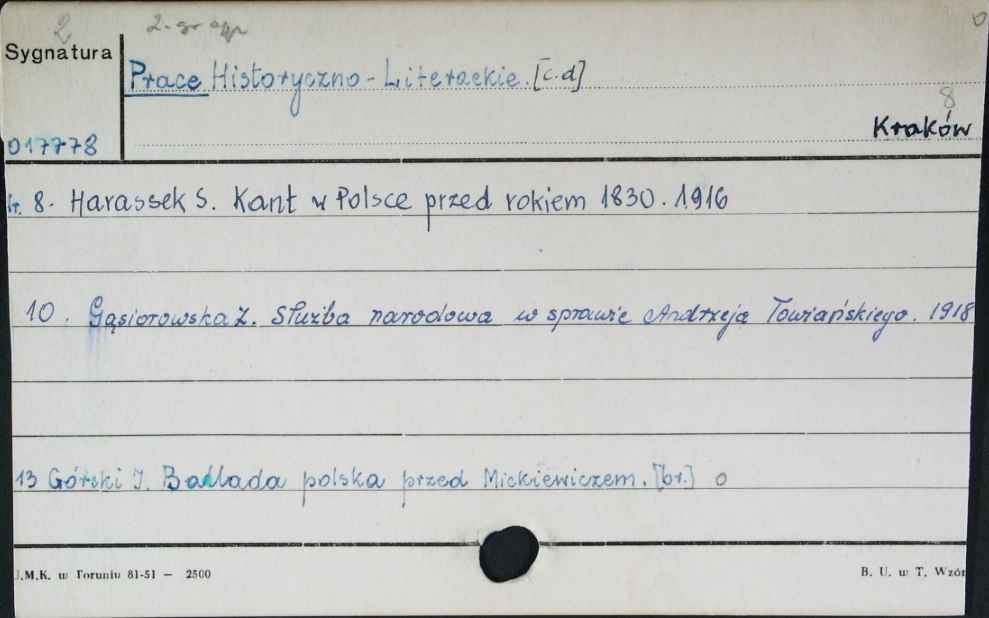 2 2. gr egz
Sygnatura
Prace Historyczno-Literackie. [c.d]
8
Kraków
017778
t. 8. Harassek S. Kant w Polsce przed rokiem 1830. 1916
10. Gąsiorowska Z. Służba narodowa w sprawie Andrzeja Towiańskiego. 1918
13 Górski J. Ballada polska przed Mickiewiczem. [br.] o
U.M.K. w Toruniu 81-51 — 2500
B. U. w T. Wzór